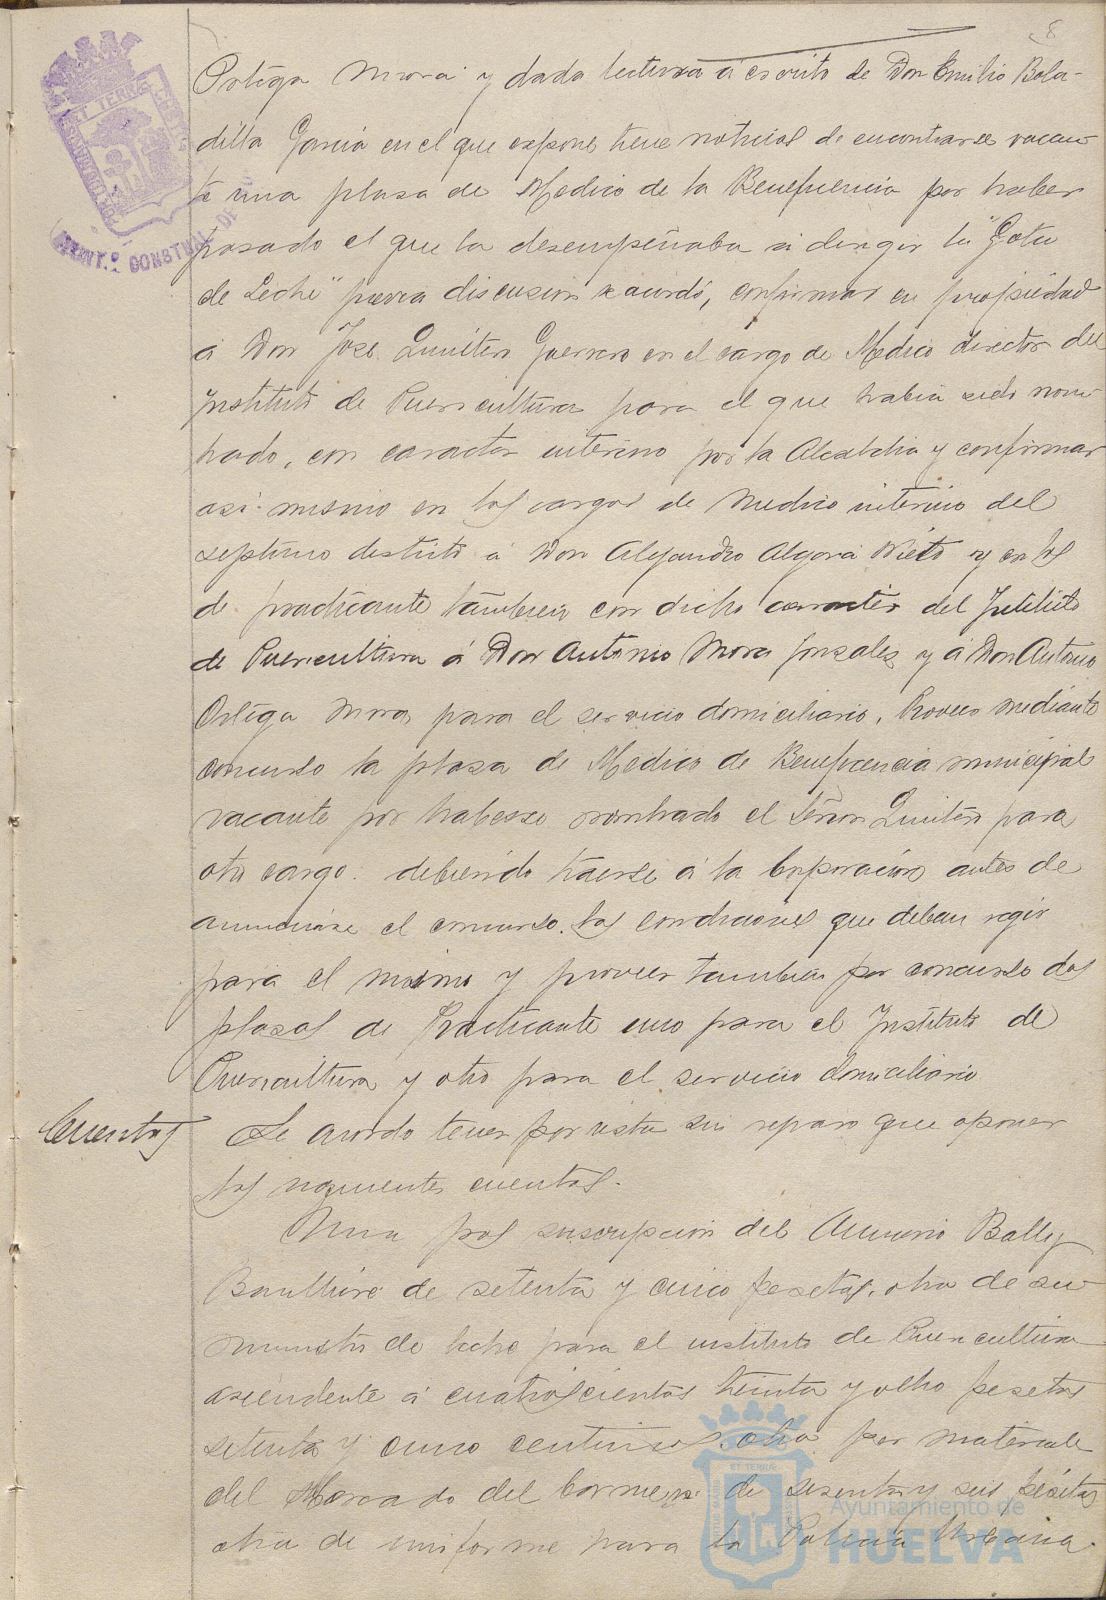 8
Ortega Mora y dada lectura á escrito de Don Emilio Boba-
dilla García en el que expone tiene noticias de encontrarse vacan-
te una plasa de Medico de la Beneficencia por haber
pasado el que la desempeñaba á dirigir la "Gota
de Leche" previa discusion se acordó, confirmar en propiedad
á Don José Quintero Guerrero en el cargo de Medico director del
Instituto de Puericultura para el que habia sido nom-
brado, con caracter interino por la Alcaldia y confirmar
asi mismo en los cargos de Medico interino del
septimo distrito á Don Alejandro Algora Nieto y en los
de practicante tambien con dicho caracter del Instituto
de Puericultura á Don Antonio Mora Gonzalez y á Don Antonio
Ortega Mora para el servicio domiciliario. Proveer mediante
concurso la plasa de Medico de Beneficencia municipal
vacante por haberse nombrado el Señor Quintero para
otro cargo. debiendo traerse á la Corporación antes de
anunciarse el concurso los condiciones que deban regir
para el mismo y proveer tambien por concurso dos
plasas de Practicante uno para el Instituto de
Puericultura y otro para el servicio domiciliario
Cuentas
Se acordo tener por vista sin reparo que oponer
las siguientes cuentas.
Una por suscripcion del Anuario Bally
Bailliere de setenta y cinco pesetas, otra de su-
ministro de leche para el instituto de Puericultura
ascendente á cuatroscientas treinta y ocho pesetas
setenta y cinco centimos, otra por materiale
del Mercado del Carmen de sesenta y seis pesetas
otra de uniforme para la Policia Urbana.
Ayuntamiento de
HUELVA